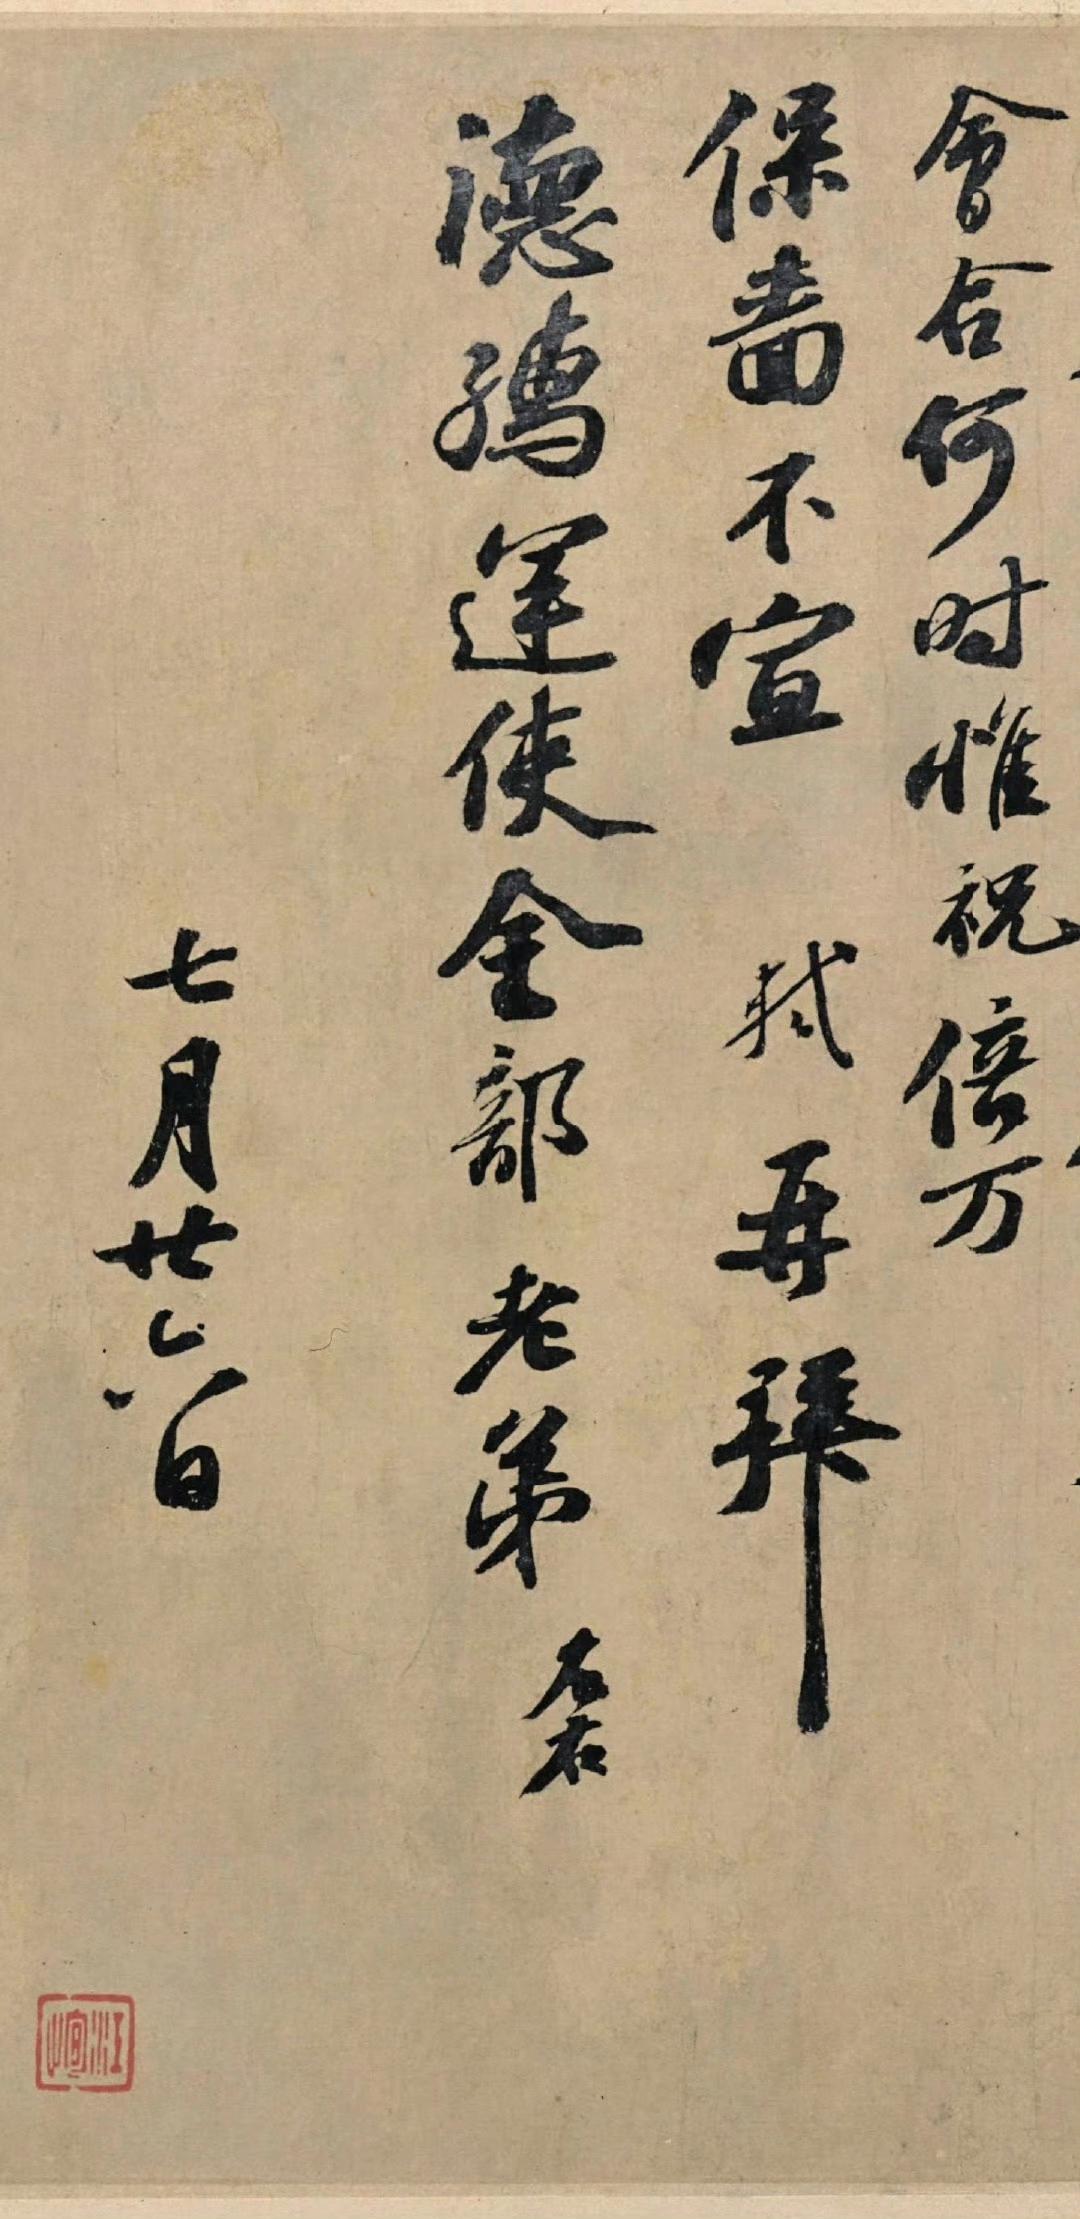 會合何時惟祝倍万
保啬不宣 軾再拜
德孺運使金部老弟 左右
七月廿六日